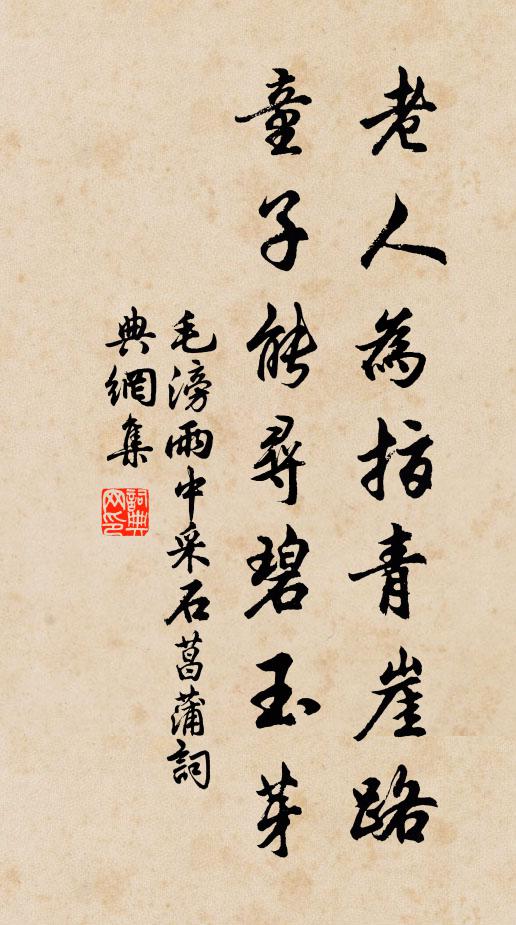 老人為指青崖路
童子能尋碧玉芽
毛滂雨中采石菖蒲詞
典網集
詞典网印